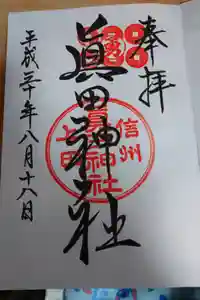 奉拝
眞田神社
信州
上田
眞田神社
平成三十年八月十八日